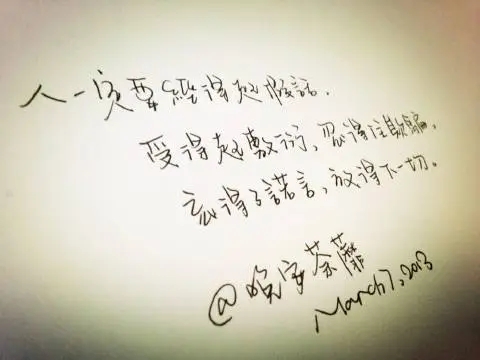 人一定要經得起假話，
受得起敷衍，忍得住欺騙，
忘得了諾言，放得下一切。
@晚安荼蘼
March 7, 2013